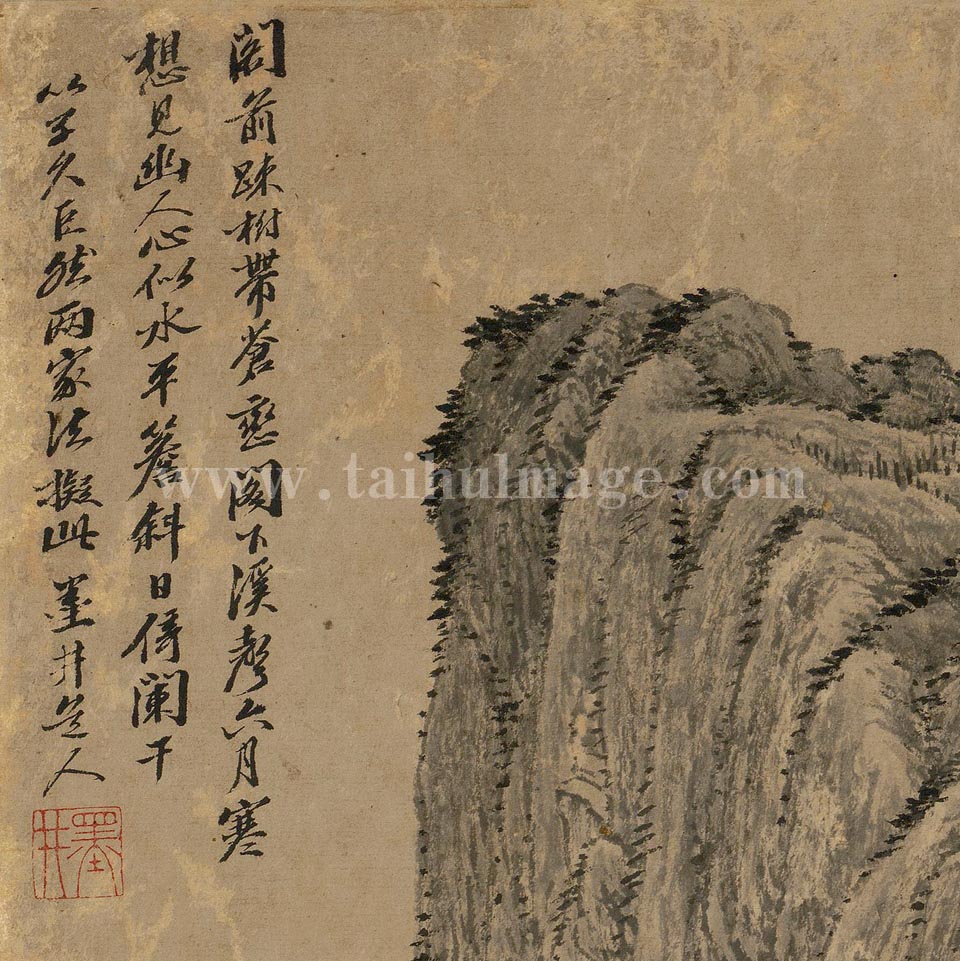 阁前疎树带苍峦阁下溪声六月寒
想見幽人心似水平簷斜日倚阑干
以子久巨然两家法擬此墨井道人
墨井
www.taihuImage.com